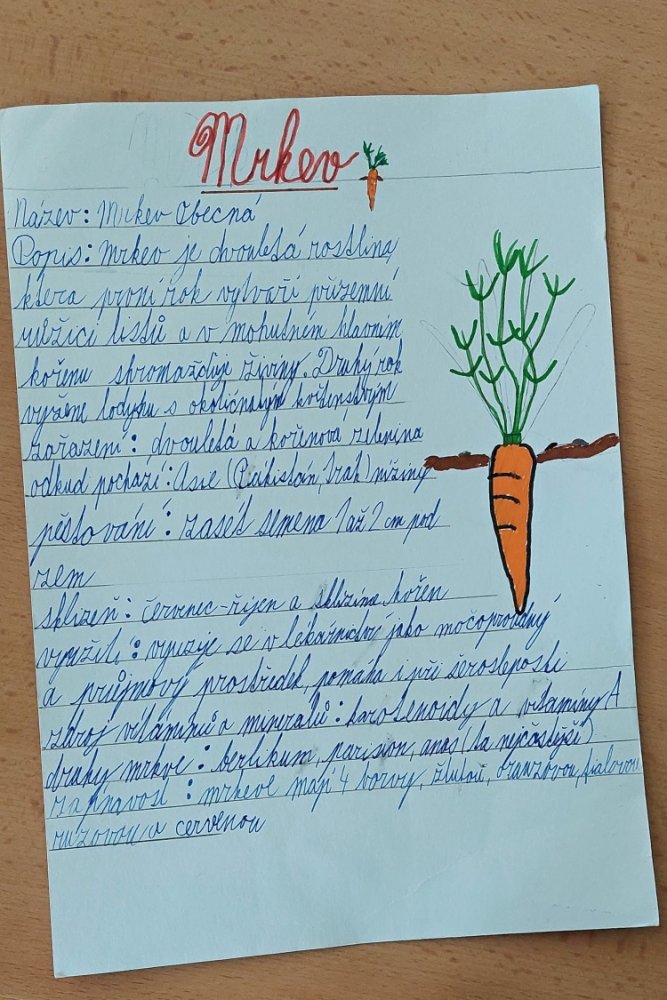 Mrkev
Název: Mrkev Obecná
Popis: mrkev je dvouletá rostlina,
ktera první rok vytvaří přízemní
růžici listů a v mohutném hlavním
kořenu shromažďuje živiny. Druhý rok
vyžene lodyhu s okoličnatým květenstvým
zařazení: dvouletá a kořenova zelenina
odkud pochazí: Asie (Pakistán, Irák) nížiny
pěstování: zasét semena 1 až 2 cm pod
zem
sklizeň: červenec-říjen a sklizina kořen
využití: vyuzije se v lékářnictví jako močoproudný
a průjmový prostředek, pomaha i při šerosleposki
zdroj vitáminů a minerálů: karotenoidy a vitamíny A
druhy mrkve: berlikum, parision, anas (ta nejčastější)
zajímavost: mrkeve mají 4 barvy, žlutou, oranžovou, fialovou
růžovou a červenou